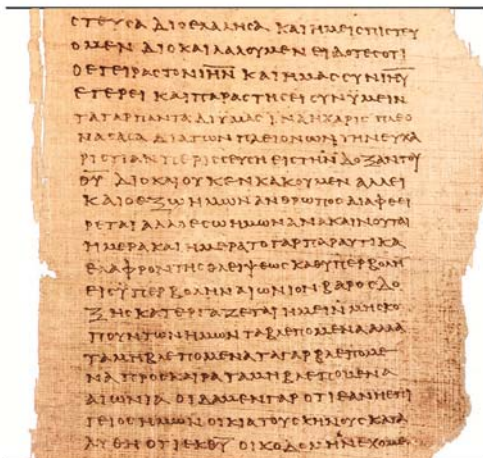 ϹΤΕΥϹΑ ΔΙΟ ΕΛΑΛΗϹΑ ΚΑΙ ΗΜΕΙϹ ΠΙϹΤΕΥ
ΟΜΕΝ ΔΙΟ ΚΑΙ ΛΑΛΟΥΜΕΝ ΕΙΔΟΤΕϹ ΟΤΙ
Ο ΕΓΕΙΡΑϹ ΤΟΝ Ι̅Η̅Ν̅ ΚΑΙ ΗΜΑϹ ϹΥΝ Ι̅Η̅Υ̅
ΕΓΕΡΕΙ ΚΑΙ ΠΑΡΑϹΤΗϹΕΙ ϹΥΝ ΥΜΕΙΝ
ΤΑ ΓΑΡ ΠΑΝΤΑ ΔΙ ΥΜΑϹ ΙΝΑ Η ΧΑΡΙϹ ΠΛΕΟ
ΝΑϹΑϹΑ ΔΙΑ ΤΩΝ ΠΛΕΙΟΝΩΝ ΤΗΝ ΕΥΧΑ
ΡΙϹΤΙΑΝ ΠΕΡΙϹϹΕΥϹΗ ΕΙϹ ΤΗΝ ΔΟΞΑΝ ΤΟΥ
Θ̅Υ̅ ΔΙΟ ΚΑΙ ΟΥΚ ΕΝΚΑΚΟΥΜΕΝ ΑΛΛ ΕΙ
ΚΑΙ Ο ΕΞΩ ΗΜΩΝ ΑΝΘΡΩΠΟϹ ΔΙΑΦΘΕΙ
ΡΕΤΑΙ ΑΛΛ Ο ΕϹΩ ΗΜΩΝ ΑΝΑΚΑΙΝΟΥΤΑΙ
ΗΜΕΡΑ ΚΑΙ ΗΜΕΡΑ ΤΟ ΓΑΡ ΠΑΡΑΥΤΙΚΑ
ΕΛΑΦΡΟΝ ΤΗϹ ΘΛΕΙΨΕΩϹ ΚΑΘ ΥΠΕΡΒΟΛΗ
ΕΙϹ ΥΠΕΡΒΟΛΗΝ ΑΙΩΝΙΟΝ ΒΑΡΟϹ ΔΟ
ΞΗϹ ΚΑΤΕΡΓΑΖΕΤΑΙ ΗΜΕΙΝ ΜΗ ϹΚΟ
ΠΟΥΝΤΩΝ ΗΜΩΝ ΤΑ ΒΛΕΠΟΜΕΝΑ ΑΛΛΑ
ΤΑ ΜΗ ΒΛΕΠΟΜΕΝΑ ΤΑ ΓΑΡ ΒΛΕΠΟΜΕ
ΝΑ ΠΡΟϹΚΑΙΡΑ ΤΑ ΜΗ ΒΛΕΠΟΜΕΝΑ
ΑΙΩΝΙΑ ΟΙΔΑΜΕΝ ΓΑΡ ΟΤΙ ΕΑΝ Η ΕΠΙ
ΓΕΙΟϹ ΗΜΩΝ ΟΙΚΙΑ ΤΟΥ ϹΚΗΝΟΥϹ ΚΑΤΑ
ΛΥΘΗ ΟΤΙ ΕΚ Θ̅Υ̅ ΟΙΚΟΔΟΜΗΝ ΕΧΟΜΕ